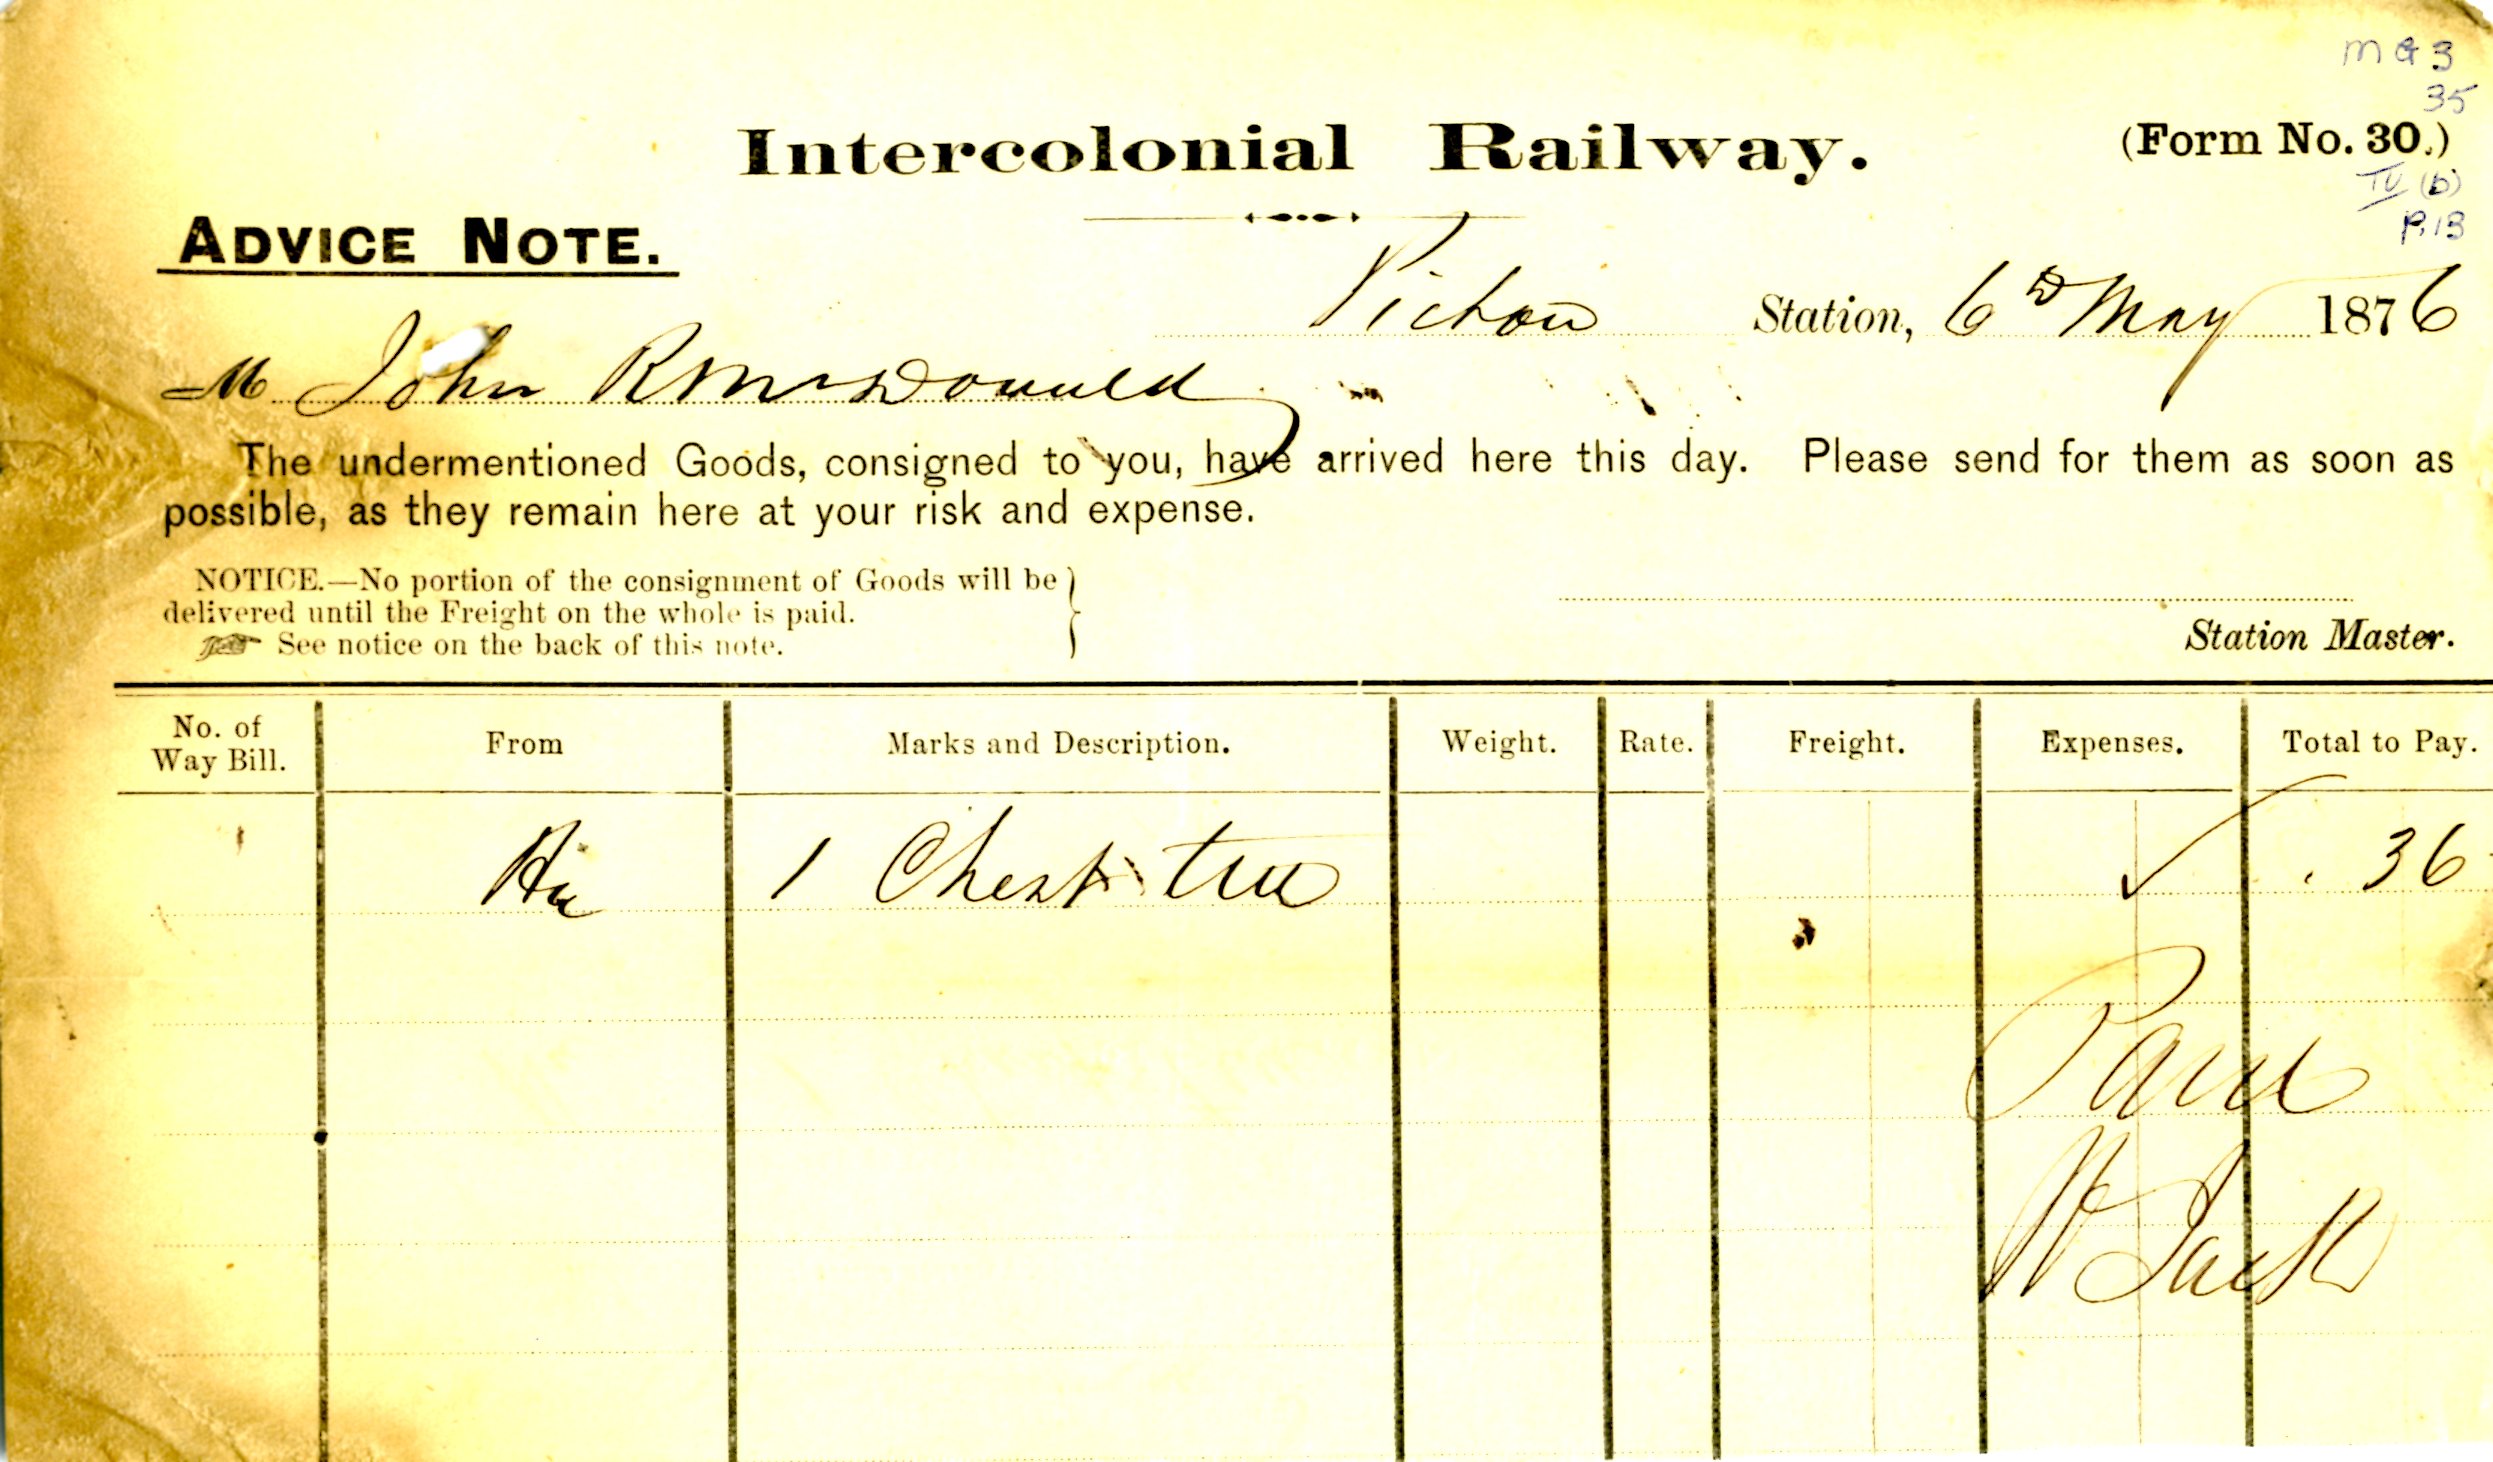 M G 3
35
Intercolonial Railway.
(Form No. 30.)
IV (b)
P. 13
ADVICE NOTE.
Pictou Station, 6th May 1876
M John R McDonald
The undermentioned Goods, consigned to you, have arrived here this day. Please send for them as soon as
possible, as they remain here at your risk and expense.
NOTICE.—No portion of the consignment of Goods will be
delivered until the Freight on the whole is paid.
☞ See notice on the back of this note.
Station Master.
No. of Way Bill. From Marks and Description. Weight. Rate. Freight. Expenses. Total to Pay.
1 Chest . 36
Paid
W Jack